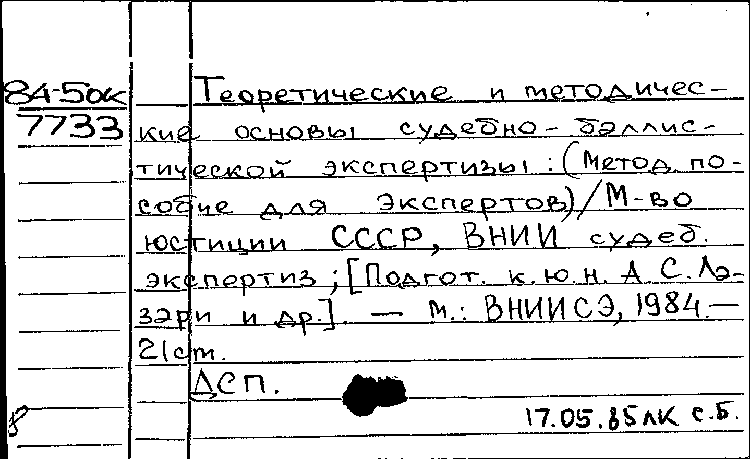 84-5ок Теоретические и методичес-
7733 кие основы судебно-баллис-
тической экспертизы: (Метод. по-
собие для экспертов)/М-во
юстиции СССР, ВНИИ судеб.
экспертиз; [Подгот. к.ю.н. А С. Лэ-
зэри и др.]. — М.: ВНИИСЭ, 1984.—
21 ст.
ДСП.
17.05.85 ЛК с.Б.
8